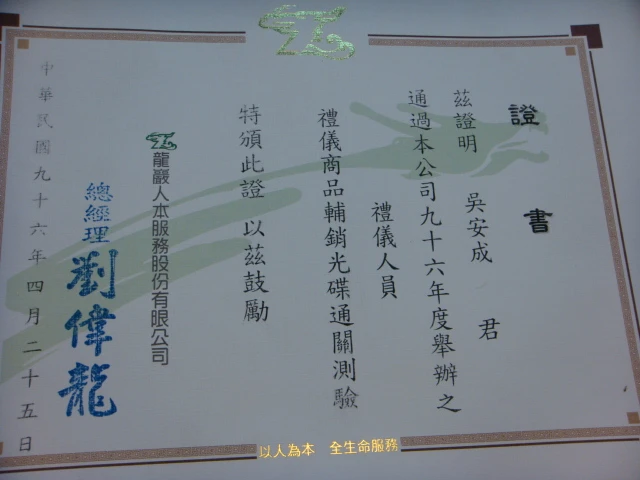 證書
茲證明 吳安成 君
通過本公司九十六年度舉辦之
禮儀人員
禮儀商品輔銷光碟通關測驗
特頒此證 以茲鼓勵
龍巖人本服務股份有限公司
總經理 劉偉龍
中華民國九十六年四月二十五日
以人為本 全生命服務